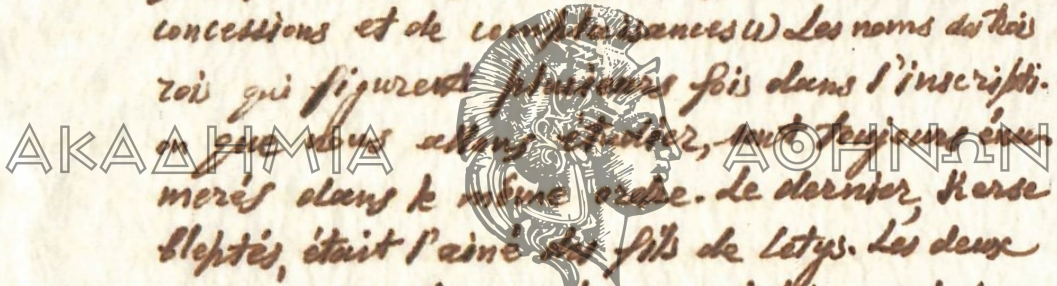 concessions et de complaisances (1) Les noms des trois
rois qui figurent plusieurs fois dans l'inscripti-
on que nous allons étudier, sont toujours énu-
ΑΚΑΔΗΜΙΑ ΑΘΗΝΩΝ
merés dans le même ordre. Le dernier, Kerse
bleptés, était l'ainé des fils de Cotys. Les deux